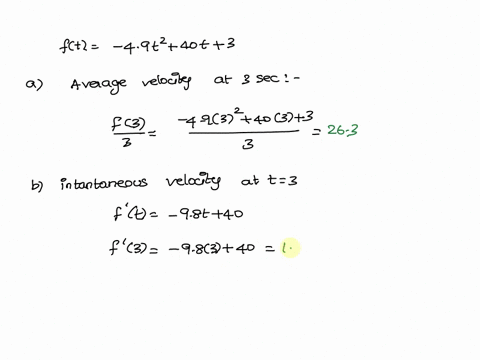 f(t) = -4.9t²+40t+3
a) Average velocity at 3 sec :-
f(3)/3 = (-4.9(3)²+40(3)+3)/3 = 26.3
b) intantaneous velocity at t=3
f'(t) = -9.8t+40
f'(3) = -9.8(3)+40 = 1.